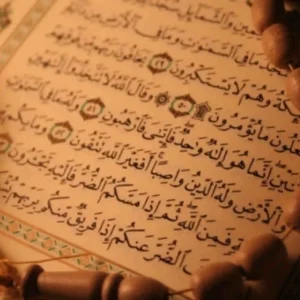 وَٱلشَّمَآئِلِ سُجَّدًا
يَسْجُدُ مَا فِى ٱلسَّمَٰوَٰتِ وَمَا فِى ٱلْأَرْضِ مِن
وَهُمْ لَا يَسْتَكْبِرُونَ ٤٩ يَخَافُونَ رَبَّهُم مِّن فَوْقِهِمْ
مَا يُؤْمَرُونَ ۩ ٥٠ ۞ وَقَالَ ٱللَّهُ لَا تَتَّخِذُوٓا۟ إِلَٰهَيْنِ
إِنَّمَا هُوَ إِلَٰهٌ وَٰحِدٌ فَإِيَّٰىَ فَٱرْهَبُونِ ٥١ وَلَهُۥ مَا فِى ٱلسَّمَٰوَٰتِ
وَٱلْأَرْضِ وَلَهُ ٱلدِّينُ وَاصِبًا أَفَغَيْرَ ٱللَّهِ تَتَّقُونَ ٥٢ وَمَا بِكُم
فَمِنَ ٱللَّهِ ثُمَّ إِذَا مَسَّكُمُ ٱلضُّرُّ فَإِلَيْهِ تَجْـَٔرُونَ
ٱلضُّرَّ عَنكُمْ إِذَا فَرِيقٌ مِّنكُم بِرَبِّهِمْ